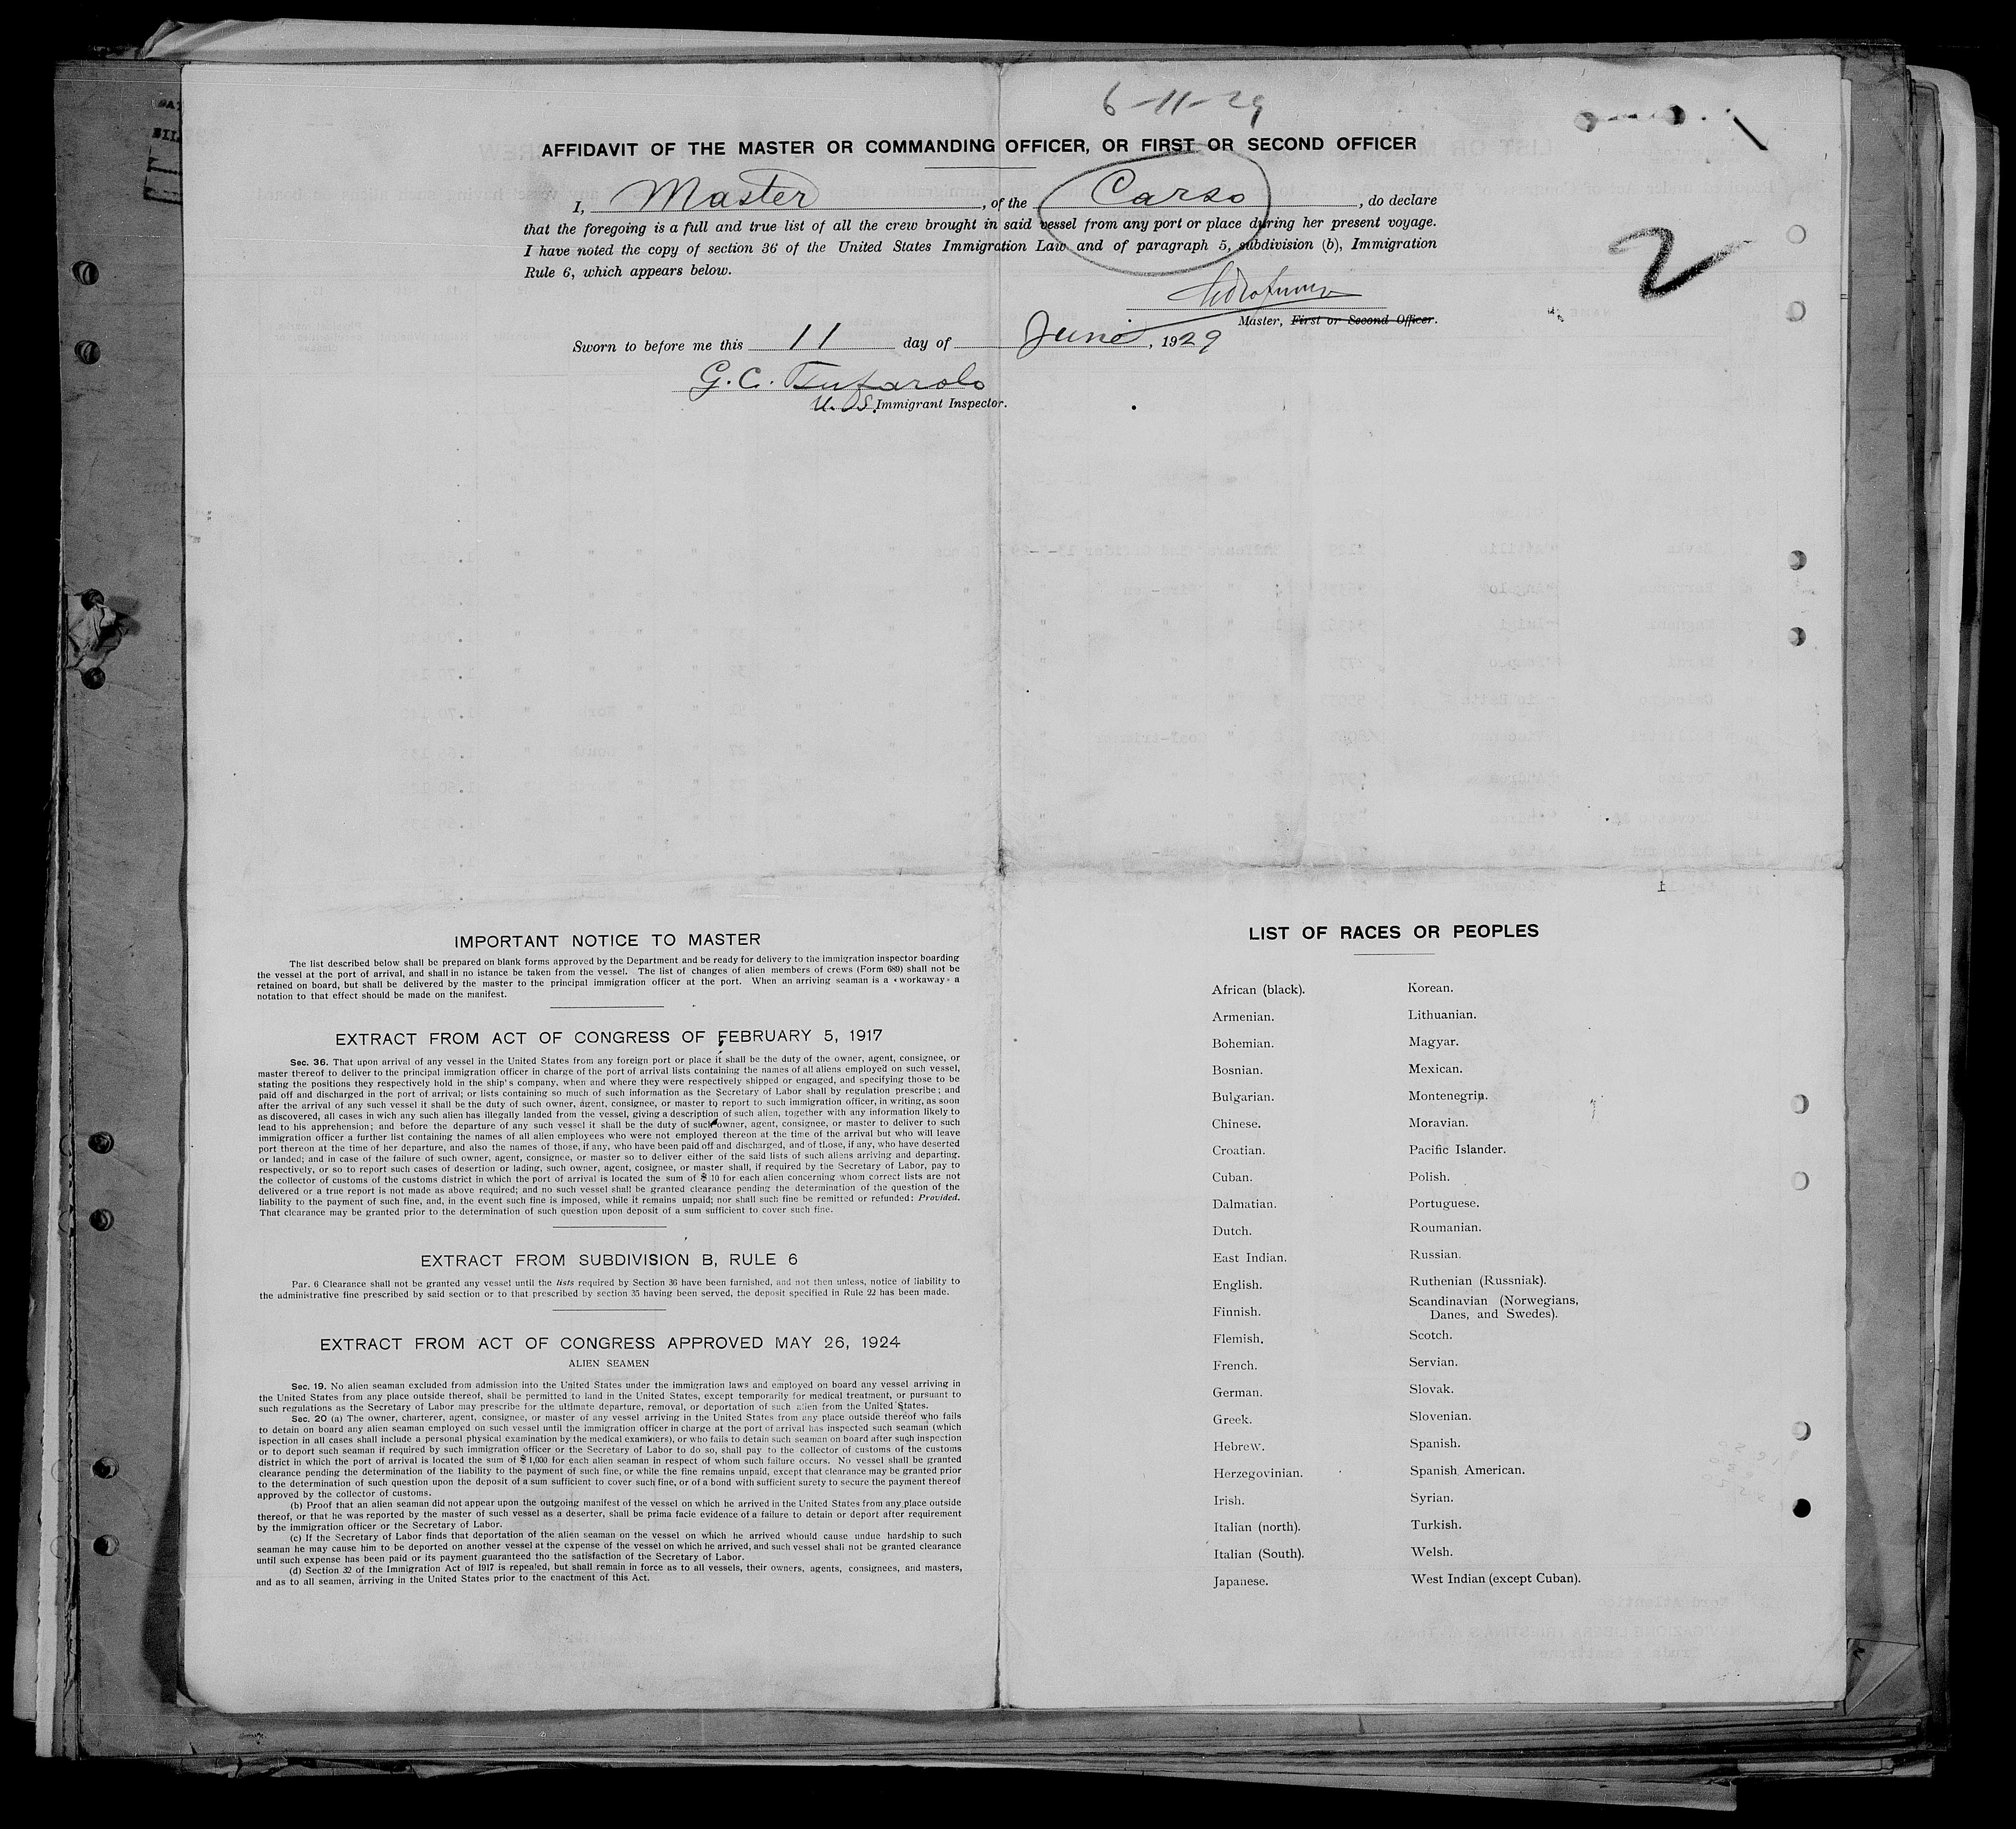 6-11-29
AFFIDAVIT OF THE MASTER OR COMMANDING OFFICER, OR FIRST OR SECOND OFFICER
I, Master, of the Carso, do declare
that the foregoing is a full and true list of all the crew brought in said vessel from any port or place during her present voyage.
I have noted the copy of section 36 of the United States Immigration Law and of paragraph 5, subdivision (b), Immigration
Rule 6, which appears below.
2
Master, First or Second Officer.
Sworn to before me this 11 day of June, 1929
G. C. Tufarolo
U. S. Immigrant Inspector.
IMPORTANT NOTICE TO MASTER
The list described below shall be prepared on blank forms approved by the Department and be ready for delivery to the immigration inspector boarding
the vessel at the port of arrival, and shall in no istance be taken from the vessel. The list of changes of alien members of crews (Form 689) shall not be
retained on board, but shall be delivered by the master to the principal immigration officer at the port. When an arriving seaman is a «workaway» a
notation to that effect should be made on the manifest.
EXTRACT FROM ACT OF CONGRESS OF FEBRUARY 5, 1917
Sec. 36. That upon arrival of any vessel in the United States from any foreign port or place it shall be the duty of the owner, agent, consignee, or
master thereof to deliver to the principal immigration officer in charge of the port of arrival lists containing the names of all aliens employed on such vessel,
stating the positions they respectively hold in the ship's company, when and where they were respectively shipped or engaged, and specifying those to be
paid off and discharged in the port of arrival; or lists containing so much of such information as the Secretary of Labor shall by regulation prescribe; and
after the arrival of any such vessel it shall be the duty of such owner, agent, consignee, or master to report to such immigration officer, in writing, as soon
as discovered, all cases in wich any such alien has illegally landed from the vessel, giving a description of such alien, together with any information likely to
lead to his apprehension; and before the departure of any such vessel it shall be the duty of such owner, agent, consignee, or master to deliver to such
immigration officer a further list containing the names of all alien employees who were not employed thereon at the time of the arrival but who will leave
port thereon at the time of her departure, and also the names of those, if any, who have been paid off and discharged, and of those, if any, who have deserted
or landed; and in case of the failure of such owner, agent, consignee, or master so to deliver either of the said lists of such aliens arriving and departing.
respectively, or so to report such cases of desertion or lading, such owner, agent, cosignee, or master shall, if required by the Secretary of Labor, pay to
the collector of customs of the customs district in which the port of arrival is located the sum of $ 10 for each alien concerning whom correct lists are not
delivered or a true report is not made as above required; and no such vessel shall be granted clearance pending the determination of the question of the
liability to the payment of such fine, and, in the event such fine is imposed, while it remains unpaid; nor shall such fine be remitted or refunded: Provided.
That clearance may be granted prior to the determination of such question upon deposit of a sum sufficient to cover such fine.
EXTRACT FROM SUBDIVISION B, RULE 6
Par. 6 Clearance shall not be granted any vessel until the lists required by Section 36 have been furnished, and not then unless, notice of liability to
the administrative fine prescribed by said section or to that prescribed by section 35 having been served, the deposit specified in Rule 22 has been made.
EXTRACT FROM ACT OF CONGRESS APPROVED MAY 26, 1924
ALIEN SEAMEN
Sec. 19. No alien seaman excluded from admission into the United States under the immigration laws and employed on board any vessel arriving in
the United States from any place outside thereof, shall be permitted to land in the United States, except temporarily for medical treatment, or pursuant to
such regulations as the Secretary of Labor may prescribe for the ultimate departure, removal, or deportation of such alien from the United States.
Sec. 20 (a) The owner, charterer, agent, consignee, or master of any vessel arriving in the United States from any place outside thereof who fails
to detain on board any alien seaman employed on such vessel until the immigration officer in charge at the port of arrival has inspected such seaman (which
ispection in all cases shall include a personal physical examination by the medical examiners), or who fails to detain such seaman on board after such inspection
or to deport such seaman if required by such immigration officer or the Secretary of Labor to do so, shall pay to the collector of customs of the customs
district in which the port of arrival is located the sum of $ 1,000 for each alien seaman in respect of whom such failure occurs. No vessel shall be granted
clearance pending the determination of the liability to the payment of such fine, or while the fine remains unpaid, except that clearance may be granted prior
to the determination of such question upon the deposit of a sum sufficient to cover such fine, or of a bond with sufficient surety to secure the payment thereof
approved by the collector of customs.
(b) Proof that an alien seaman did not appear upon the outgoing manifest of the vessel on which he arrived in the United States from any place outside
thereof, or that he was reported by the master of such vessel as a deserter, shall be prima facie evidence of a failure to detain or deport after requirement
by the immigration officer or the Secretary of Labor.
(c) If the Secretary of Labor finds that deportation of the alien seaman on the vessel on which he arrived whould cause undue hardship to such
seaman he may cause him to be deported on another vessel at the expense of the vessel on which he arrived, and such vessel shall not be granted clearance
until such expense has been paid or its payment guaranteed tho the satisfaction of the Secretary of Labor.
(d) Section 32 of the Immigration Act of 1917 is repealed, but shall remain in force as to all vessels, their owners, agents, consignees, and masters,
and as to all seamen, arriving in the United States prior to the enactment of this Act.
LIST OF RACES OR PEOPLES
African (black).
Armenian.
Bohemian.
Bosnian.
Bulgarian.
Chinese.
Croatian.
Cuban.
Dalmatian.
Dutch.
East Indian.
English.
Finnish.
Flemish.
French.
German.
Greek.
Hebrew.
Herzegovinian.
Irish.
Italian (north).
Italian (South).
Japanese.
Korean.
Lithuanian.
Magyar.
Mexican.
Montenegrin.
Moravian.
Pacific Islander.
Polish.
Portuguese.
Roumanian.
Russian.
Ruthenian (Russniak).
Scandinavian (Norwegians,
Danes, and Swedes).
Scotch.
Servian.
Slovak.
Slovenian.
Spanish.
Spanish American.
Syrian.
Turkish.
Welsh.
West Indian (except Cuban).